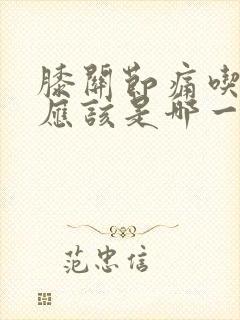 膝關節痛喫
應該是哪一
范忠信